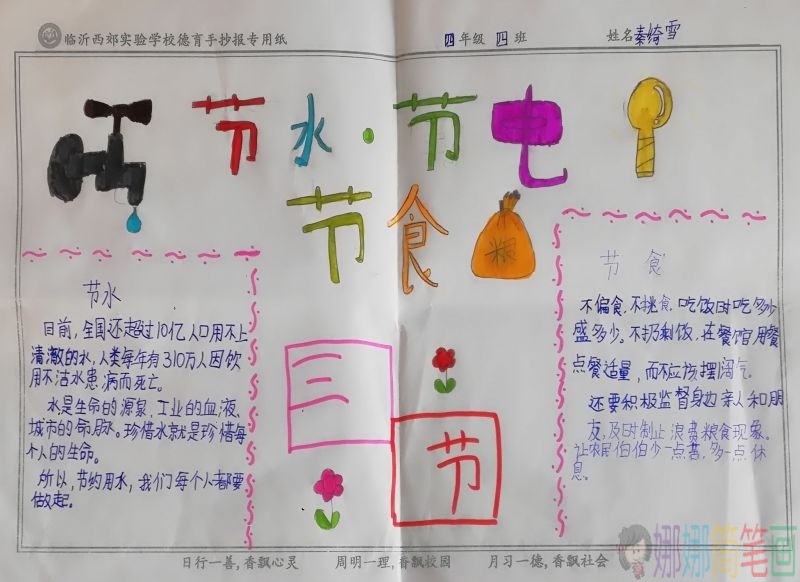 临沂西郊实验学校德育手抄报专用纸
四年级 四班
姓名秦绮雪
节水·节电
节食
粮
节水
目前,全国还超过10亿人口用不上
清澈的水,人类每年有310万人因饮
用不洁水患病而死亡。
水是生命的源泉,工业的血液、
城市的命脉。珍惜水就是珍惜每
个人的生命。
所以,节约用水,我们每个人都要
做起。
三
节
节食
不偏食,不挑食,吃饭时吃多少
盛多少。不扔剩饭,在餐馆用餐
点餐适量,而不应该摆阔气。
还要积极监督身边亲人和朋
友,及时制止浪费粮食现象。
让农民伯伯少一点苦,多一点休
息。
日行一善,香飘心灵 周明一理,香飘校园 月习一德,香飘社会
娜娜简笔画